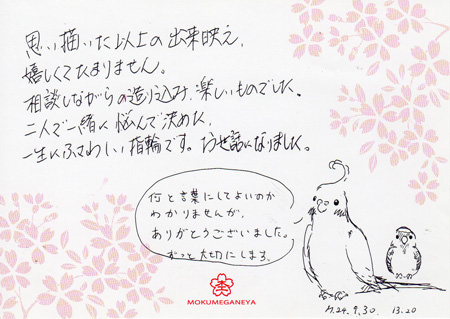 思い描いた以上の出来映え、
嬉しくてたまりません。
相談しながらの造り込み、楽しいものでした。
二人で一緒に悩んで決めた、
一生にふさわしい指輪です。お世話になりました。
何と言葉にしてよいのか
わかりませんが、
ありがとうございました。
ずっと大切にします。
MOKUMEGANEYA
H.24.9.30. 13.20